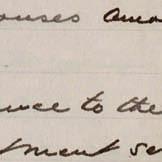 ouses amo
nce to the
tment se